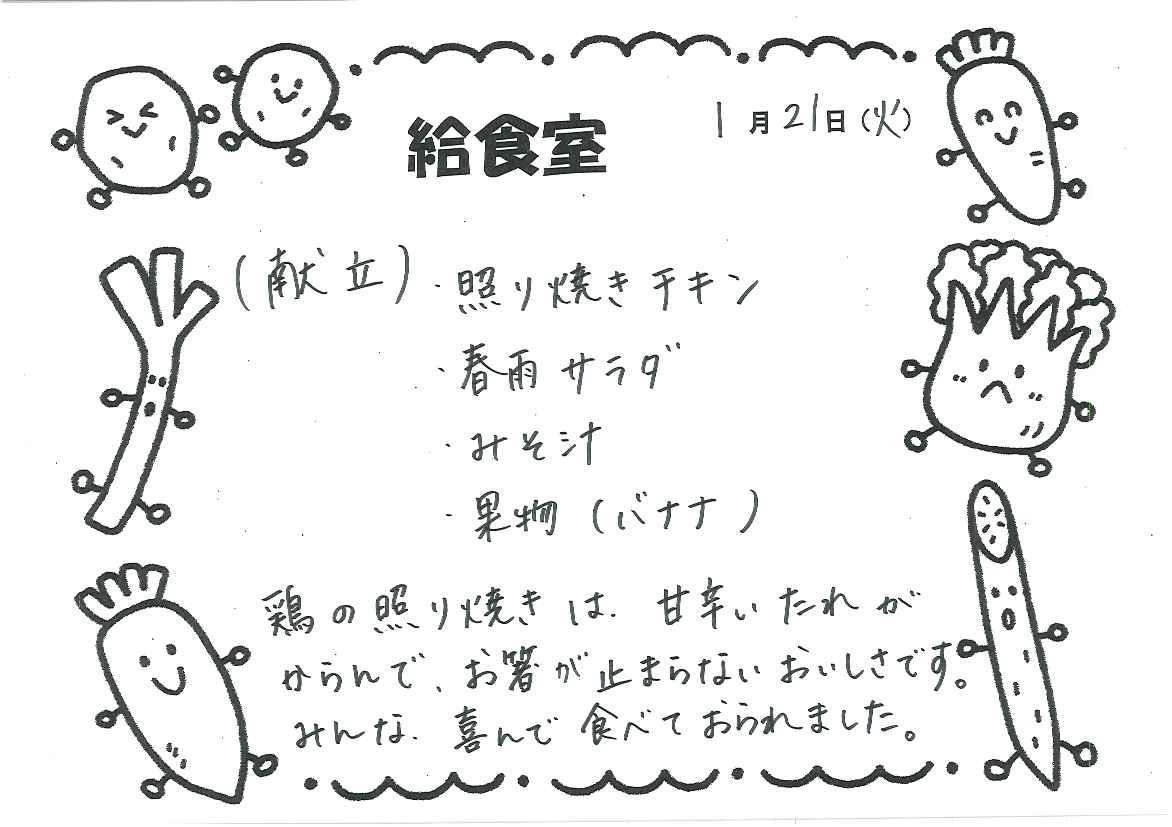 給食室
1月21日(火)
(献立)・照り焼きチキン
・春雨サラダ
・みそ汁
・果物(バナナ)
鶏の照り焼きは、甘辛いたれが
からんで、お箸が止まらないおいしさです。
みんな、喜んで食べておられました。